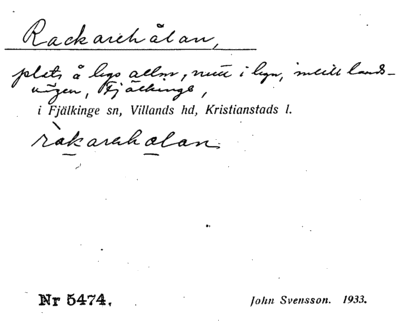 Rackarehålan,
plats å bys allm, mitt i byn, intill lands-
vägen, Fjälkinge,
i Fjälkinge sn, Villands hd, Kristianstads l.
ràkarehålan.
Nr 5474.
John Svensson. 1933.